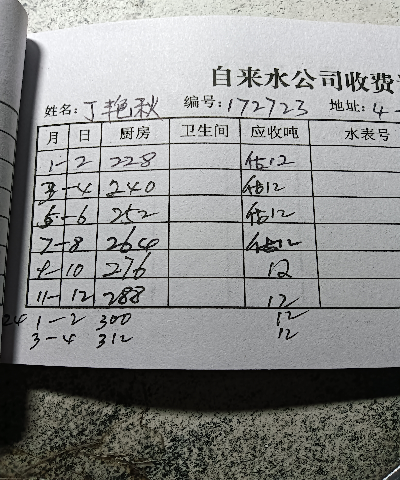 自来水公司收费
姓名: 丁艳秋 编号: 172723 地址: 4-
月 日 厨房 卫生间 应收吨 水表号
1-2 228 估12
3-4 240 估12
5-6 252 估12
7-8 264 估12
9-10 276 12
11-12 288 12
24 1-2 300 12
3-4 312 12